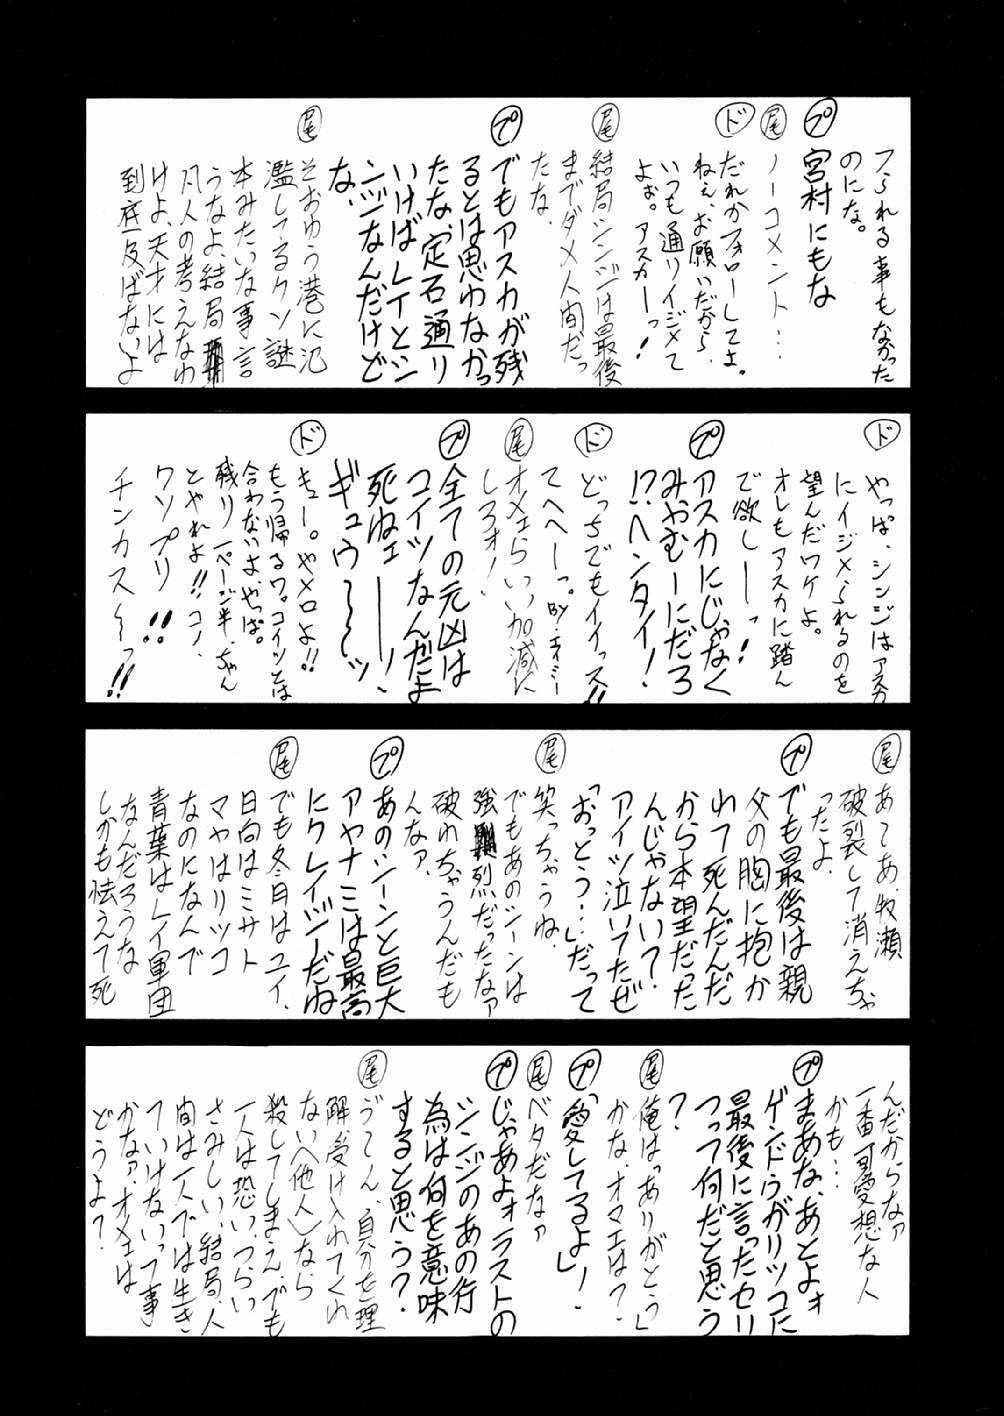 フられる事もなかった
のにな。
プ 宮村にもな
尾 ノーコメント…
ド だれかフォローしてよ。
ねぇ、お願いだから、
いつも通りイジメて
よぉ。アスカーっ!
尾 結局シンジは最後
までダメ人間だっ
たな、
プ でもアスカが残
るとは思わなかっ
たな、定石通り
いけばレイとシ
ンジなんだけど
な、
尾 そおゆう港に氾
濫してるクソ謎
本みたいな事言
うなよ、結局
凡人の考えなわ
けよ、天才には
到底及ばないよ
ド やっぱ、シンジはアスカ
にイジメられるのを
望んだワケよ。
オレもアスカに踏ん
で欲しーーっ!
プ アスカにじゃなく
みやむーにだろ
!?ヘンタイ!
ド どっちでもイイっス!!
てへへーっ。BY.エイジー
尾 オメェらいい加減に
しろォ!
プ 全ての元凶は
コイツなんだよ
死ねェーーー!
ギュウ〜〜〜ッ
ド キュー。やメロよ!!
もう帰るワ。コイツとは
合わないよ、やっぱ。
残り一ページ半、ちゃん
とやれよ!!コノ、
クソプリ!!
チンカス〜〜っ!!
尾 あてあ、牧瀬
破裂して消えちゃ
ったよ、
プ でも最後は親
父の胸に抱か
れて死んだんだ
から本望だった
んじゃない?
アイツ泣いてたぜ
「おっとう…」だって
尾 笑っちゃうね、
でもあのシーンは
強烈だったなァ
破れちゃうんだも
んなァ、
プ あのシーンと巨大
アヤナミは最高
にクレイジーだね
尾 でも冬月はユイ、
日向はミサト
マヤはリツコ
なのになんで
青葉はレイ軍団
なんだろうな
しかも怯えて死
んだからなァ
一番可愛想な人
かも…
プ まあな、あとよォ
ゲンドウがリツコに
最後に言ったセリ
フって何だと思う
?
尾 俺は「ありがとう」
かな、オマエは?
プ 「愛してるよ!」
尾 ベタだなァ
プ じゃあよォラストの
シンジのあの行
為は何を意味
すると思う?
尾 うてん、自分を理
解受け入れてくれ
ない(他人)なら
殺してしまえ、でも
一人は恐い、つらい
さみしい、結局、人
間は一人では生き
ていけないって事
かなァ、オメェは
どうよ?